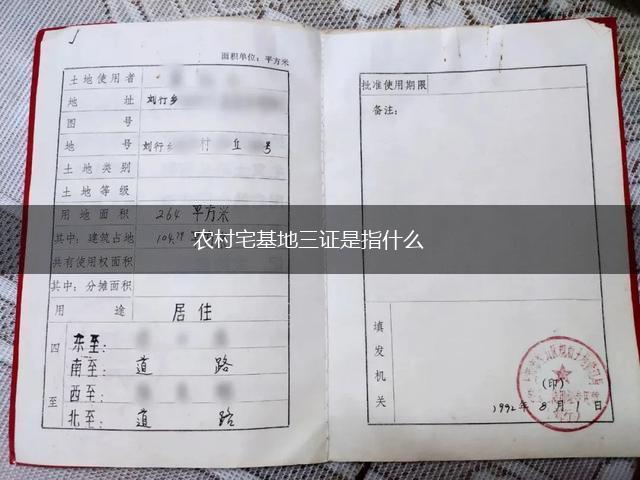 面积单位：平方米
土地使用者
地 址 刘行乡
图 号
地 号 刘行乡 村 丘 号
土地类别
土地等级
用地面积 264 平方米
其中：建筑占地 104.78
共有使用权面积
其中：分摊面积
用 途 居住
四至
东至：
南至：道 路
西至：
北至：道 路
批准使用期限
备注：
填发机关
(印)
1992年8月1日
农村宅基地三证是指什么